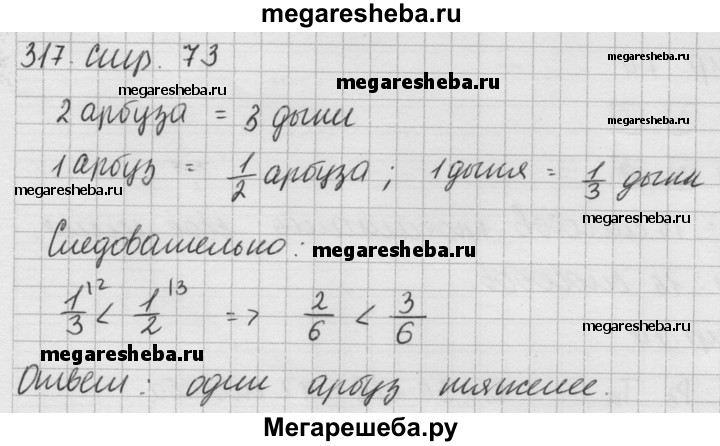 megaresheba.ru
317. стр. 73
megaresheba.ru
megaresheba.ru
megaresheba.ru
2 арбуза = 3 дыни
megaresheba.ru
1 арбуз = 1/2 арбуза ; 1 дыня = 1/3 дыни
megaresheba.ru
megaresheba.ru
Следовательно:
megaresheba.ru
1/3 |2 < 1/2 |3 => 2/6 < 3/6
megaresheba.ru
megaresheba.ru
Ответ: один арбуз тяжелее.
Мегарешеба.ру